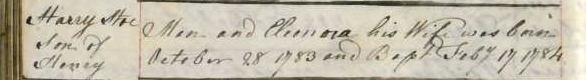 Harry Moe
Son of
Henry
Moe and Eleonora his Wife was born
October 28 1783 and Bapt. Feby 17 1784